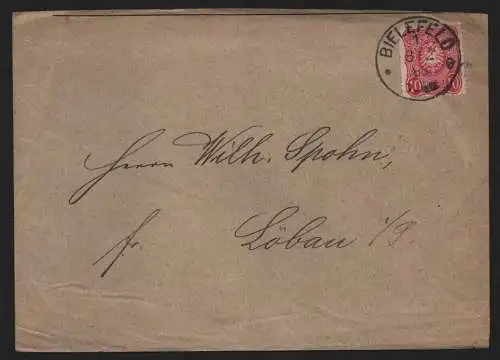 BIELEFELD
10
Herrn Wilh. Spohn,
fr. Löbau i/S.